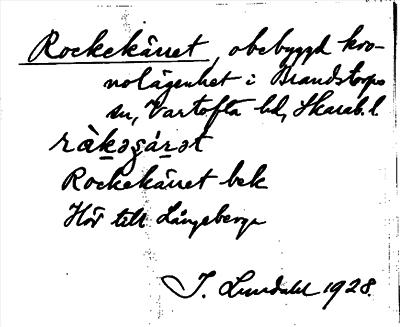 Rockekärret, obebyggd kro-
nolägenhet i Brandstorps
sn, Vartofta hd, Skarab. l.
ràkəɡárət
Rockekärret bek
Hör till Långeberga
J. Lundahl 1928.